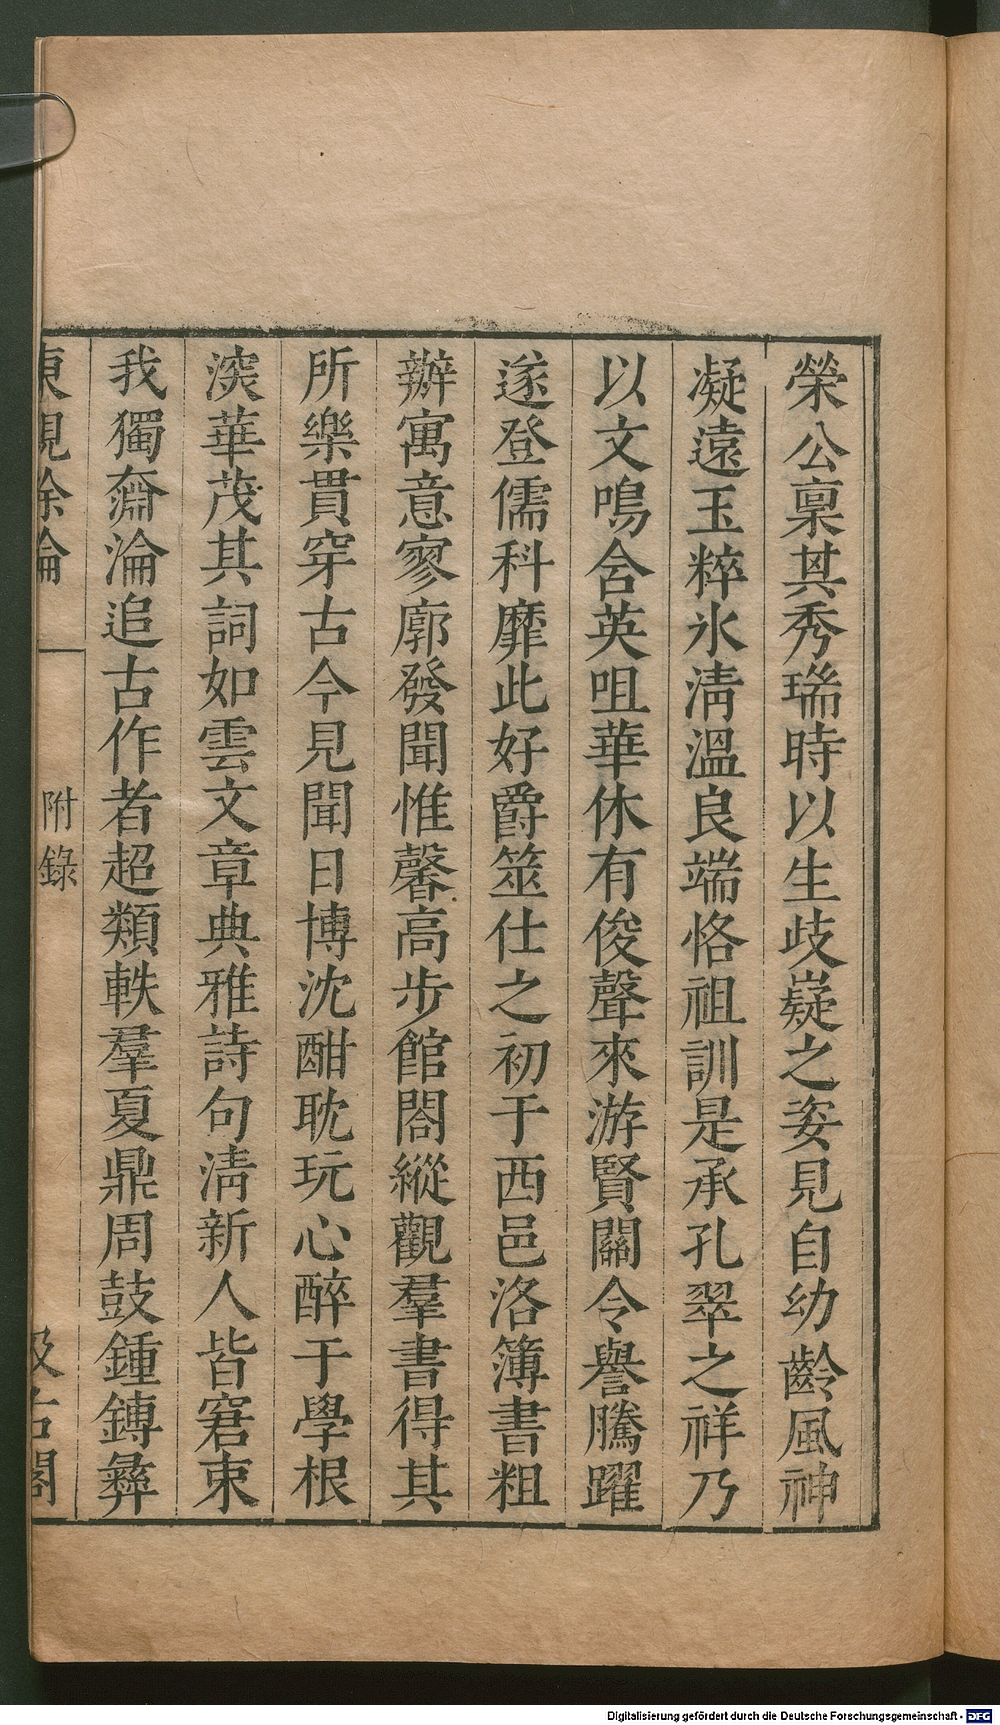 榮公稟其秀瑞時以生歧嶷之姿見自幼齡風神
凝遠玉粹氷清溫良端恪祖訓是承孔翠之祥乃
以文鳴含英咀華休有俊聲來游賢關令譽騰躍
遂登儒科靡此好爵筮仕之初于西邑洛簿書粗
辦寓意寥廓發聞惟馨高步館閣縱觀羣書得其
所樂貫穿古今見聞日博沈酣耽玩心醉于學根
深華茂其詞如雲文章典雅詩句清新人皆窘束
我獨奫淪追古作者超類軼羣夏鼎周鼓鍾鎛彝
東觀餘論 附錄 汲古閣
Digitalisierung gefördert durch die Deutsche Forschungsgemeinschaft - DFG